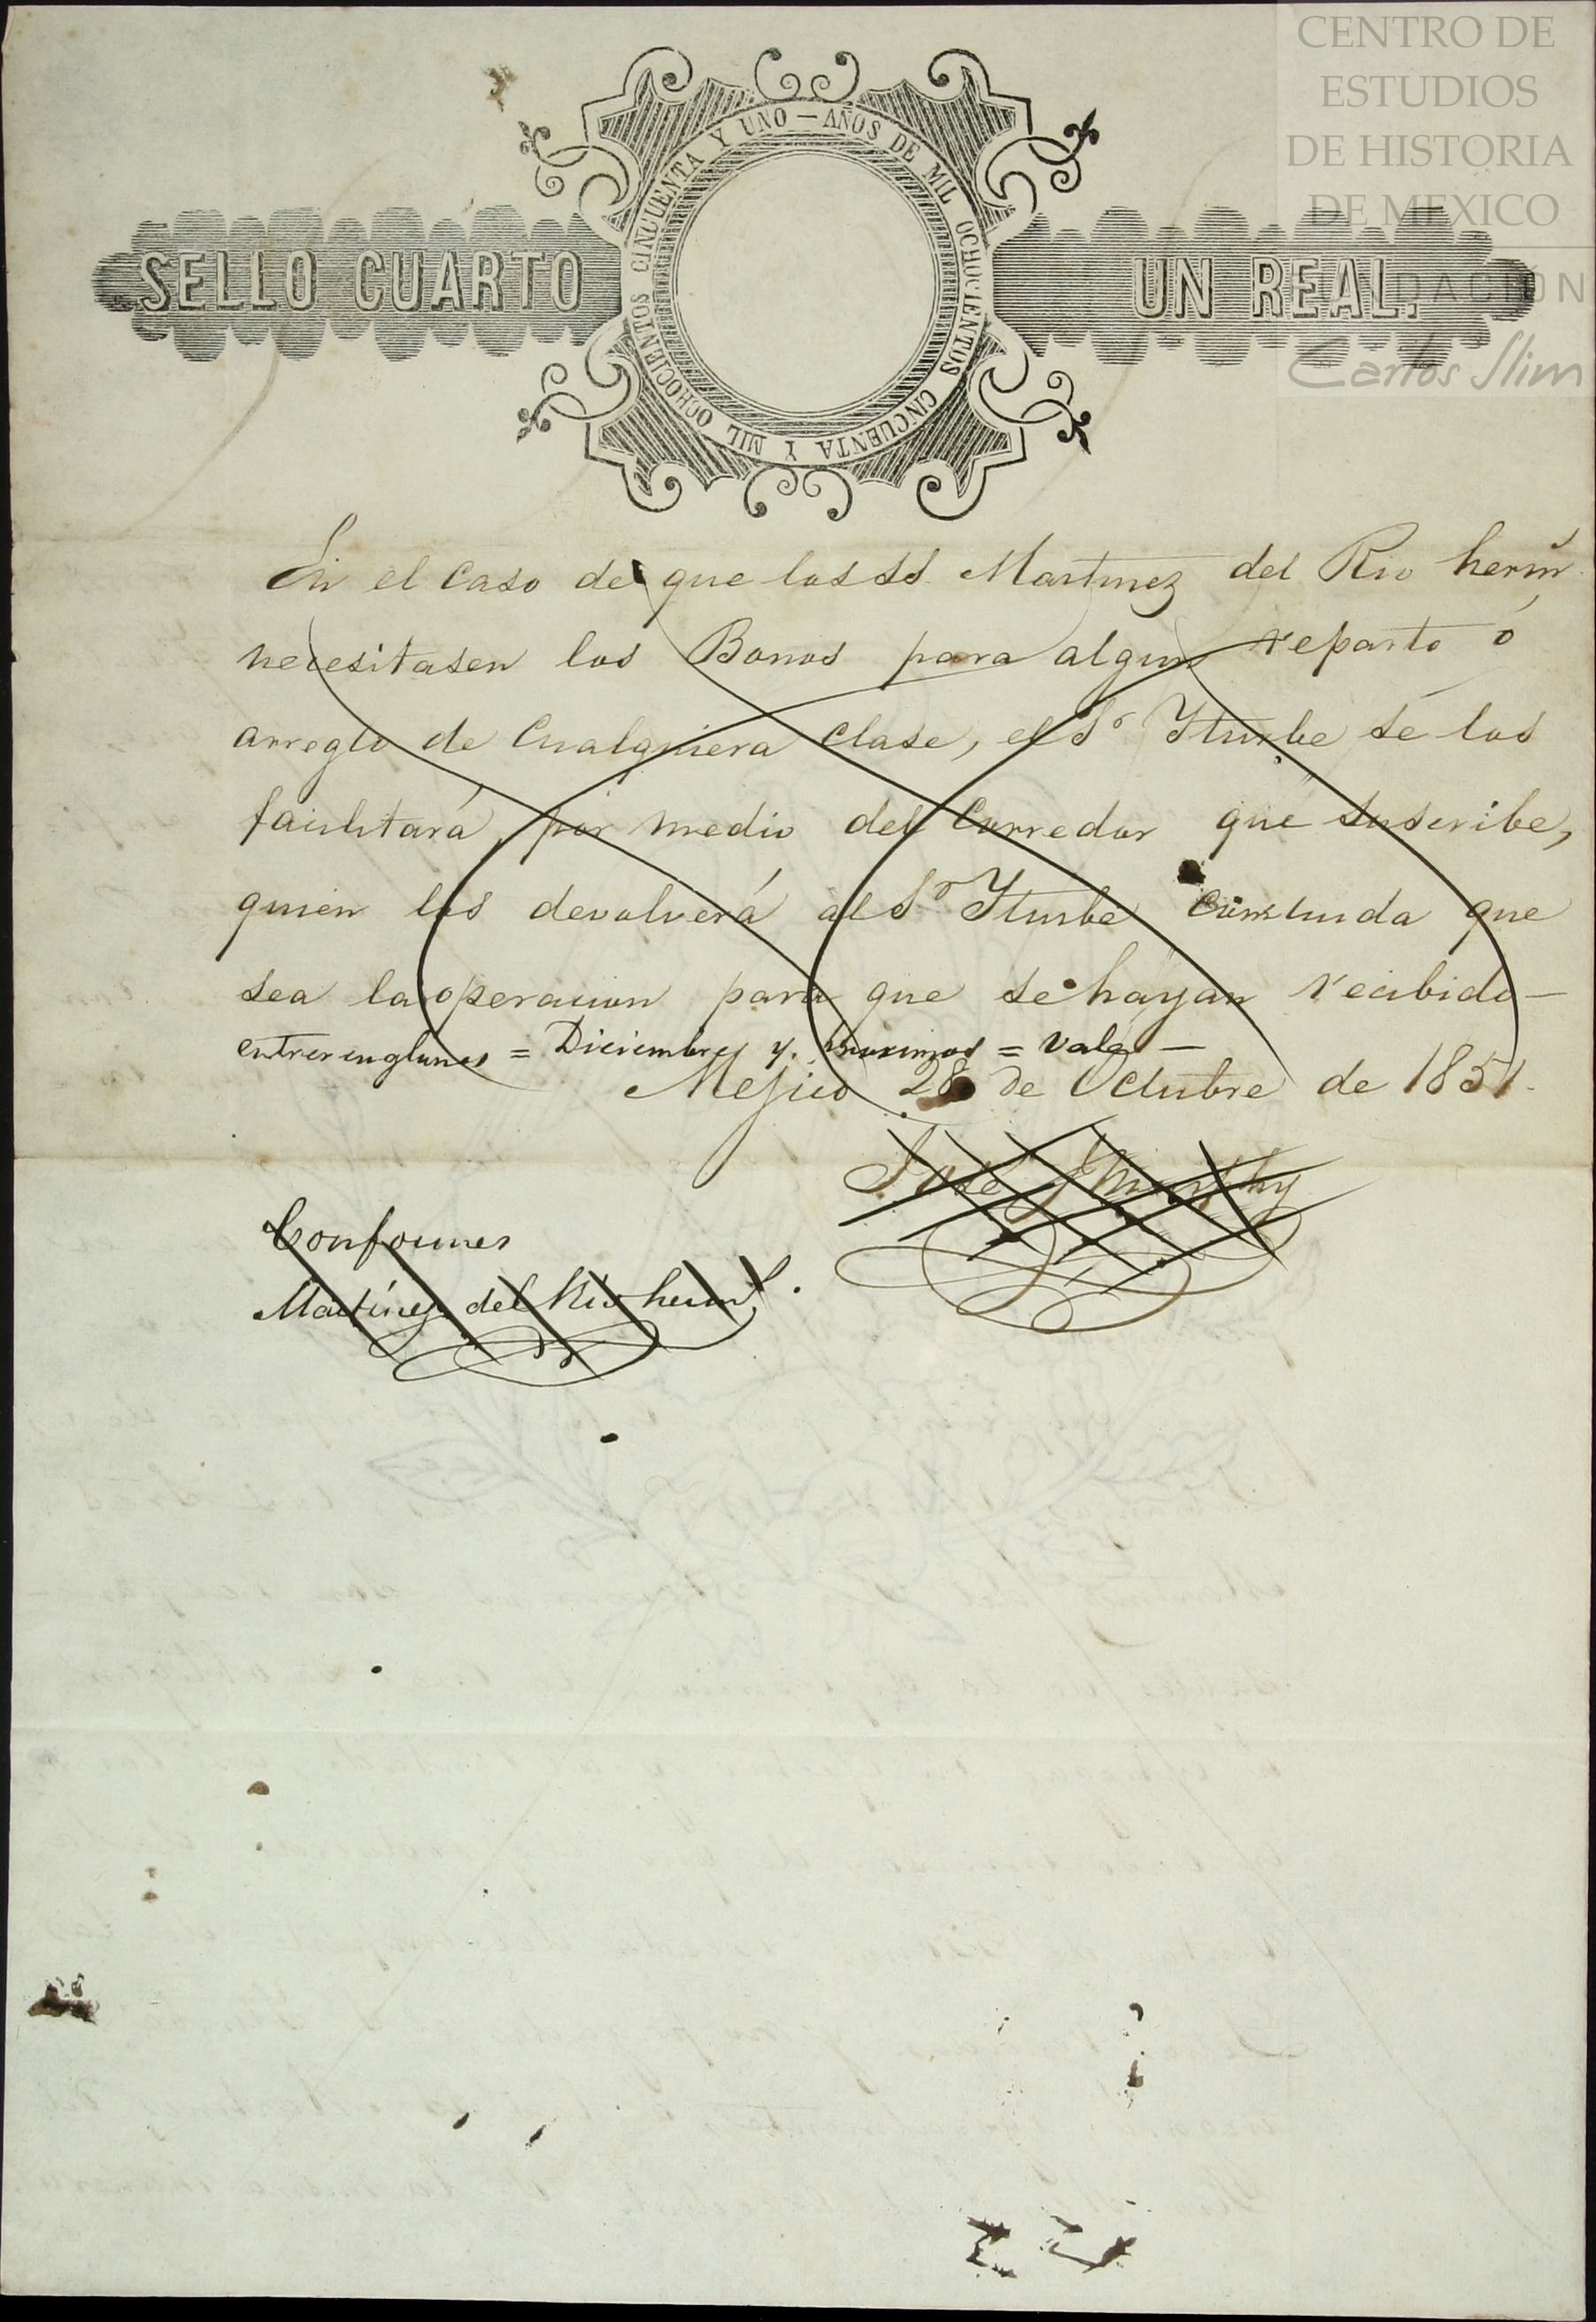 CENTRO DE
ESTUDIOS
DE HISTORIA
DE MEXICO
FUNDACIÓN
Carlos Slim
SELLO CUARTO
AÑOS DE MIL OCHOCIENTOS CINCUENTA Y MIL OCHOCIENTOS CINCUENTA Y UNO —
UN REAL.
En el caso de que los SS. Martinez del Rio herm.
necesitasen los Bonos para algun reparto ó
arreglo de cualquiera clase, el Sr Yturbe se los
facilitará, por medio del Corredor que suscribe,
quien los devolverá al Sr Yturbe concluida que
sea la operacion para que se hayan recibido —
entrerenglones = Diciembre y proximos = vale —
Mejico 28 de Octubre de 1851.
José Murphy
Conformes
Martínez del Rio herms.